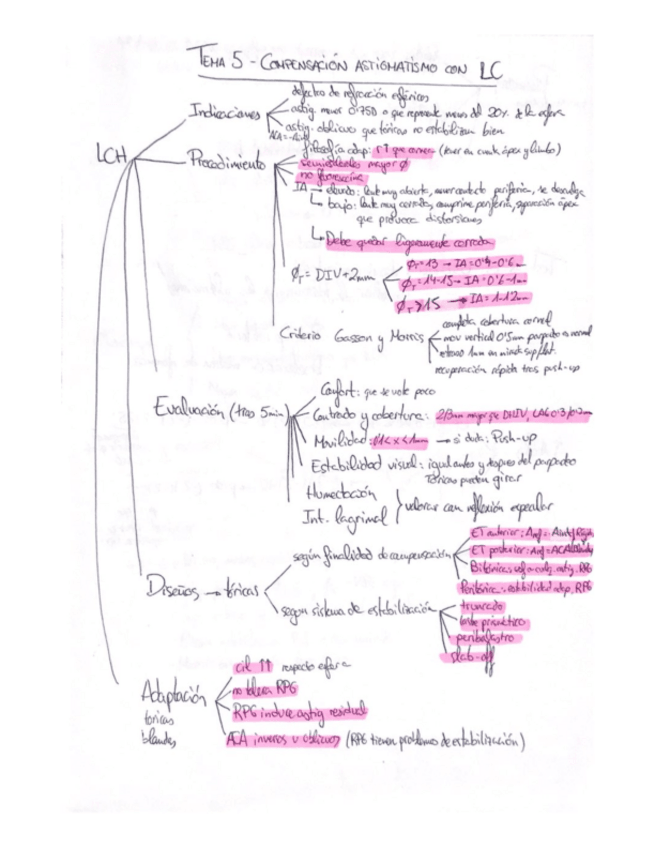 TEMA 5 - COMPENSACIÓN ASTIGMATISMO CON LC
LCH
Indicaciones
defectos de refracción esféricos
astig. menor 0.75D o que represente menos del 20% de la esfera
astig. oblicuos que tóricas no estabilizan bien
Procedimiento
filosofía adap: r↑ que cornea (tener en cuenta ápex y limbo)
semiesclerales mayor φ
no fluoresceína
IA → elevado: lente muy abierta, menor contacto periferia, se descuelga
↳ bajo: lente muy cerrada, comprime periferia, separación ápex
que provoca distorsiones
↳ Debe quedar ligeramente cerrada
φT = DIV + 2mm
φT=13 → IA=0'4-0'6
φT=14-15 → IA=0'6-1mm
φT>15 → IA=1-1'2mm
Criterio Gasson y Morris
completa cobertura corneal
mov vertical 0'5mm parpadeo normal
recuperación rápida tras push-up
Evaluación (tras 5min)
Confort: que se note poco
Centrado y cobertura: 2/3mm mayor que DHIV,
Movilidad: 0'1< x <1mm → si duda: Push-up
Estabilidad visual: igual antes y despues del parpadeo
Tóricas pueden girar
Humectación
Int. lagrimal
valorar con reflexión especular
Diseños → tóricas
según finalidad de compensación
ET anterior:
ET posterior:
Bitóricas:
Peritórica: estabilidad adap. RPG
segun sistema de estabilización
truncado
lente prismático
peribalastro
slab-off
Adaptación
toricas
blandas
cil ↑↑ respecto esfera
no tolera RPG
RPG induce astig residual
ACA inversos u oblicuos (RPG tienen problema de estabilización)